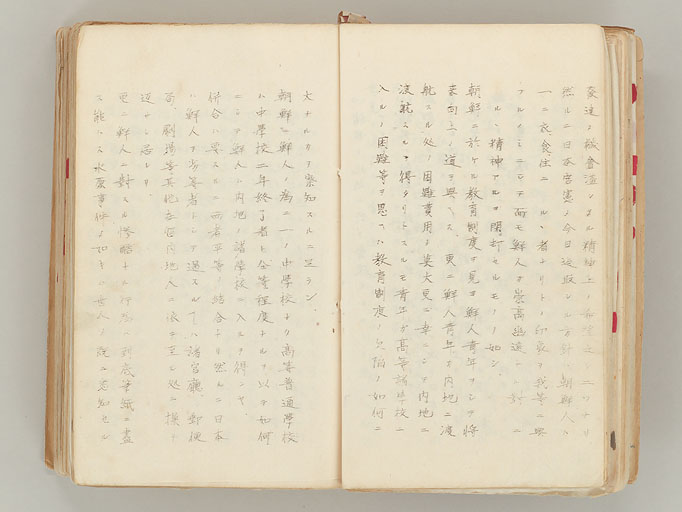 然ルニ日本官憲ノ今日迄取レル方針ハ朝鮮人ハ
一ニ衣食住ニ ル者ナリトノ印象ヲ我等ニ与
フルノミニシテ而モ鮮人ガ崇高幽遠
ル精神アルヲ閑却セルモノノ如シ
朝鮮ニ於ケル教育制度ヲ見ヨ鮮人青年ヲシテ将
来向上ノ道ヲ與ヘス更ニ鮮人青年ガ内地ニ渡
航スル処ノ困難費用ノ莫大更ニ幸ニシテ内地ニ
渡航シ得タリトスルモ青年ガ高等諸学校ニ
入ルノ困難等ヲ思ヘハ教育制度ノ欠陥ノ如何ニ
大ナルカヲ察知スルニ足ラン、
朝鮮ニ鮮人ノ為ニ一ノ中学校ナク高等普通学校
ハ中学校二年終了者ト仝等程度ナルヲ以テ如何
ニシテ鮮人ハ内地ノ諸学校ニ入ルヲ得ンヤ、
併合ハ要スルニ両者平等ノ結合ナリ然ルニ日本
ハ鮮人ヲ劣等者トシテ遇スルヤ諸官廳、郵便
局、劇場等其他在住内地人ニ依テ至ル処ニ
更ニ鮮人ニ對スル惨酷ナル行為ハ到底筆紙ニ盡
ス能ハス水原事件ノ如キハ世人ノ既ニ知セル